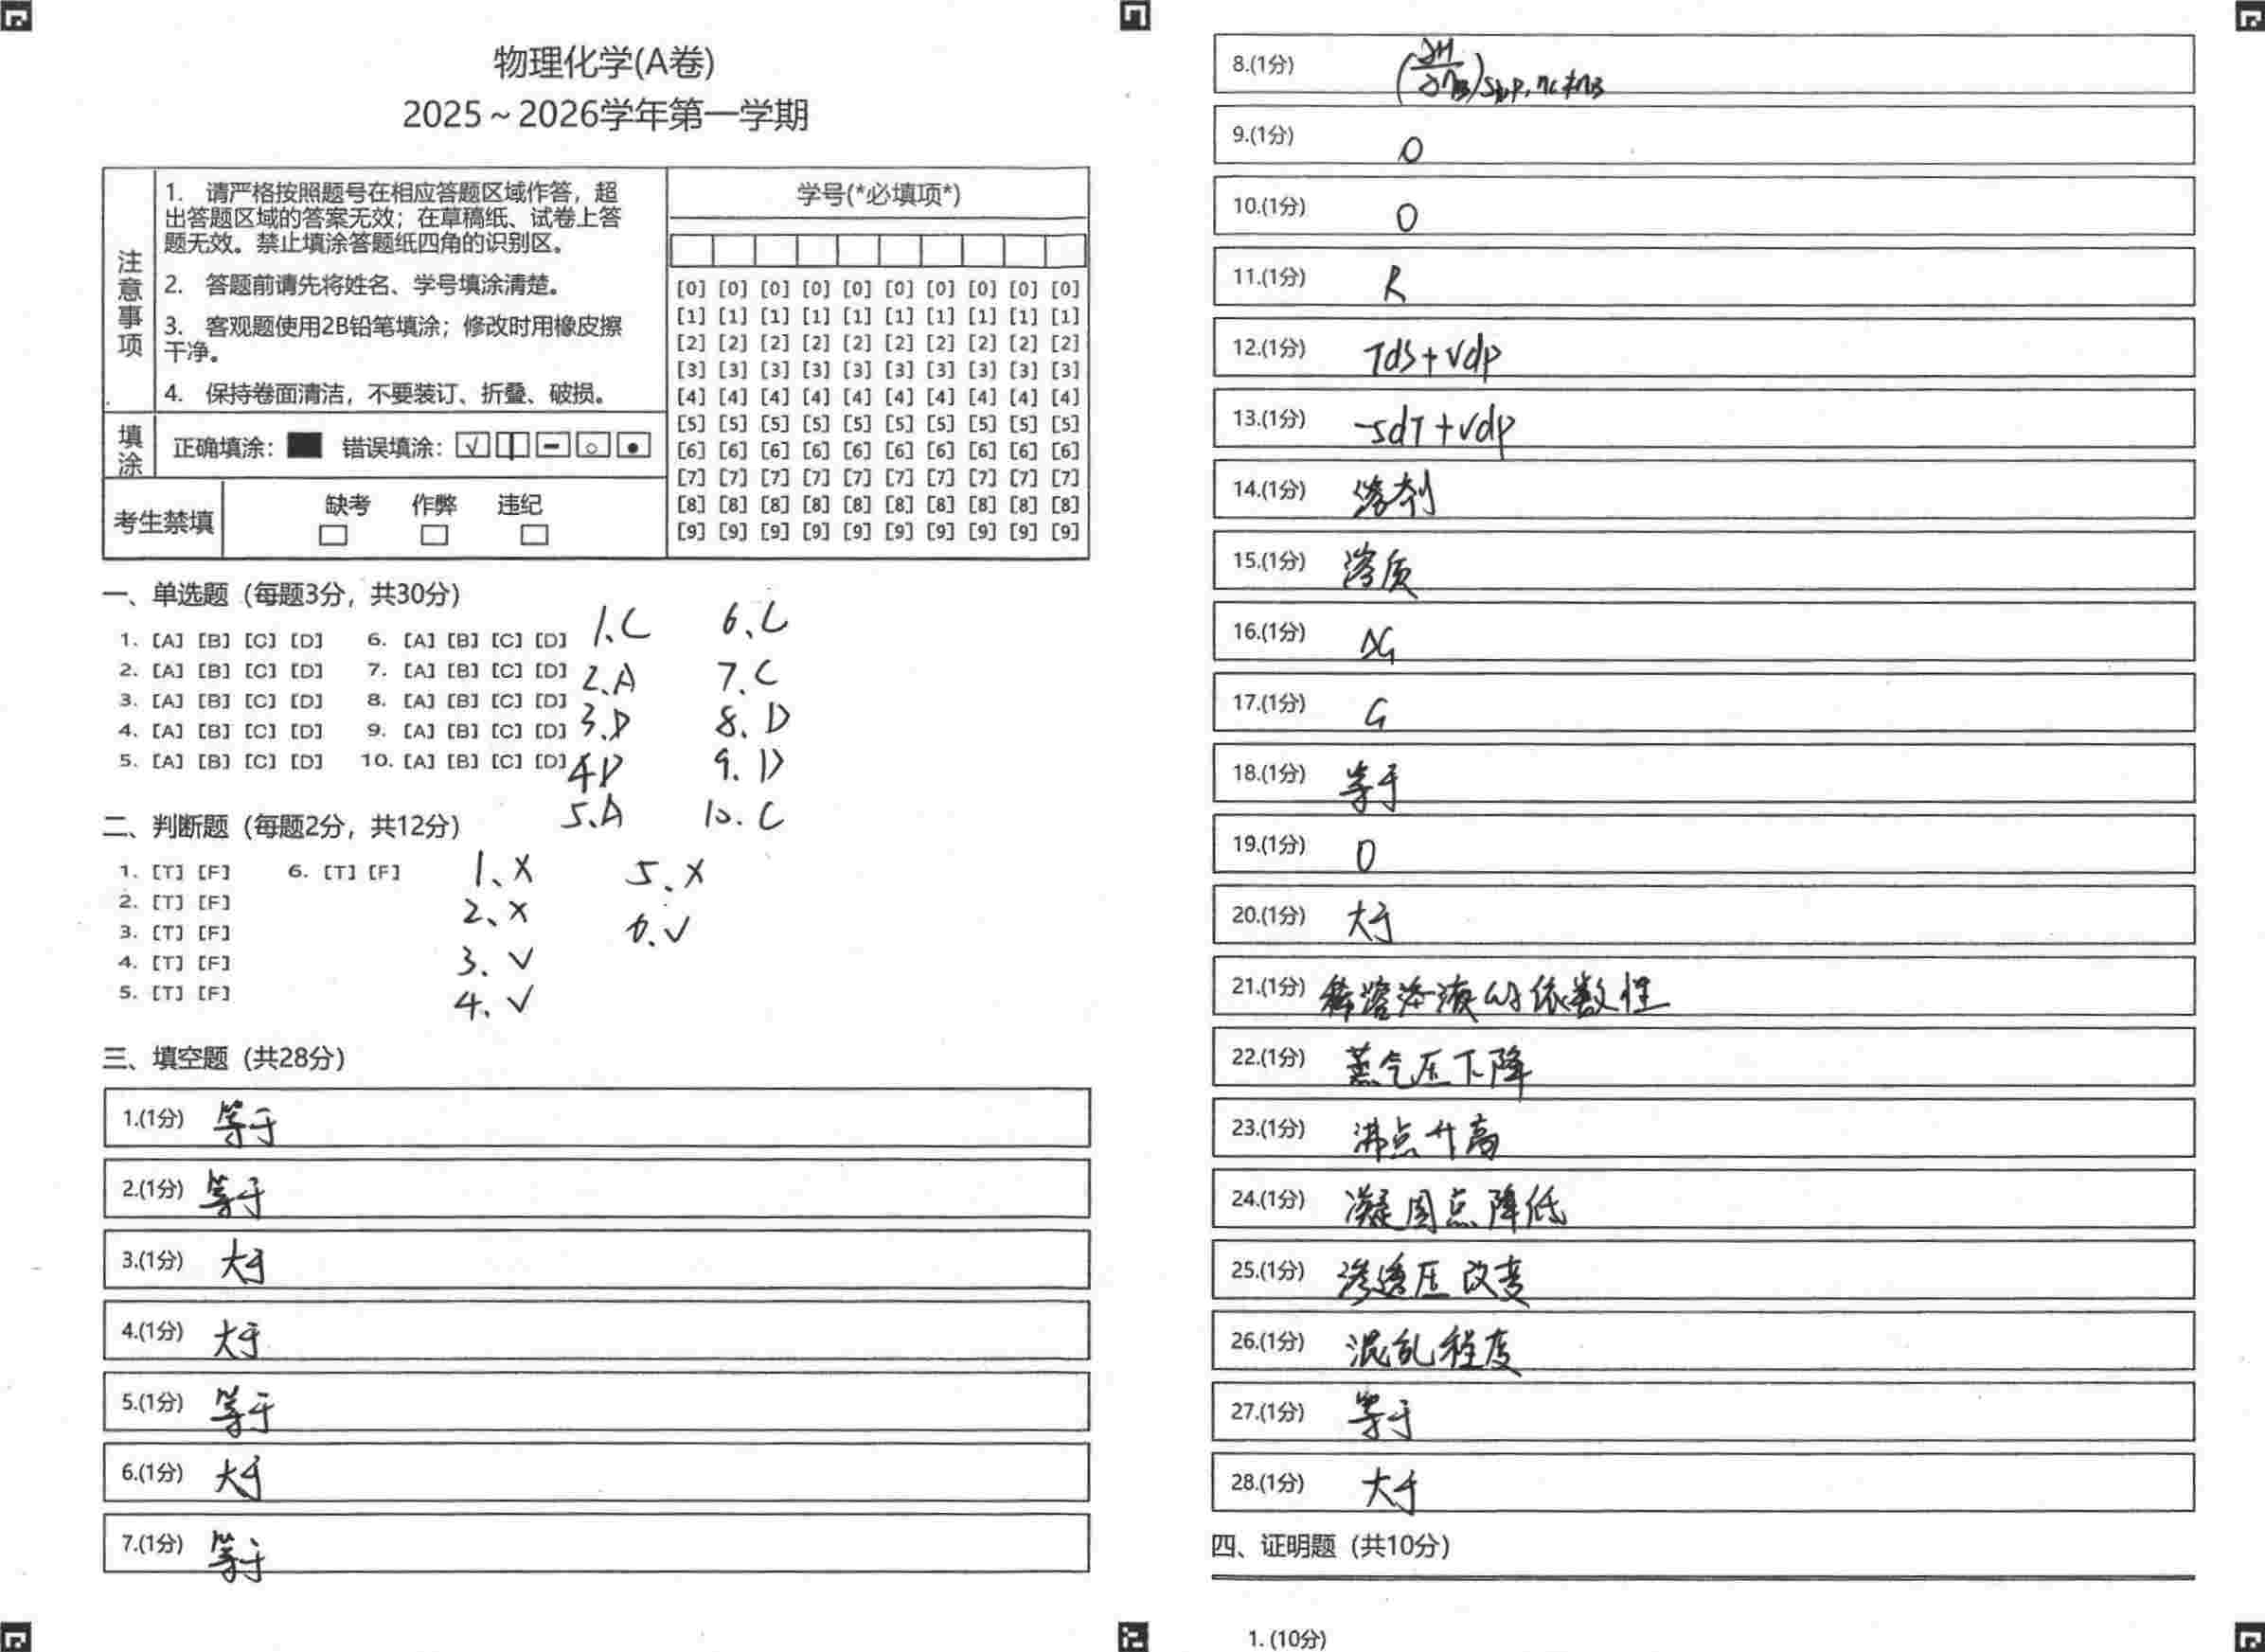 物理化学(A卷)
2025～2026学年第一学期
注意事项
1. 请严格按照题号在相应答题区域作答，超
出答题区域的答案无效；在草稿纸、试卷上答
题无效。禁止填涂答题纸四角的识别区。
2. 答题前请先将姓名、学号填涂清楚。
3. 客观题使用2B铅笔填涂；修改时用橡皮擦
干净。
4. 保持卷面清洁，不要装订、折叠、破损。
填涂 正确填涂： 错误填涂：
考生禁填 缺考 作弊 违纪
学号(*必填项*)
[0] [0] [0] [0] [0] [0] [0] [0] [0] [0]
[1] [1] [1] [1] [1] [1] [1] [1] [1] [1]
[2] [2] [2] [2] [2] [2] [2] [2] [2] [2]
[3] [3] [3] [3] [3] [3] [3] [3] [3] [3]
[4] [4] [4] [4] [4] [4] [4] [4] [4] [4]
[5] [5] [5] [5] [5] [5] [5] [5] [5] [5]
[6] [6] [6] [6] [6] [6] [6] [6] [6] [6]
[7] [7] [7] [7] [7] [7] [7] [7] [7] [7]
[8] [8] [8] [8] [8] [8] [8] [8] [8] [8]
[9] [9] [9] [9] [9] [9] [9] [9] [9] [9]
一、单选题（每题3分，共30分）
1. [A] [B] [C] [D] 6. [A] [B] [C] [D] 1、C 6、C
2. [A] [B] [C] [D] 7. [A] [B] [C] [D] 2、A 7、C
3. [A] [B] [C] [D] 8. [A] [B] [C] [D] 3、D 8、D
4. [A] [B] [C] [D] 9. [A] [B] [C] [D] 4D 9、D
5. [A] [B] [C] [D] 10. [A] [B] [C] [D] 5、A 10. C
二、判断题（每题2分，共12分）
1. [T] [F] 6. [T] [F] 1、× 5、×
2. [T] [F] 2、× 6、√
3. [T] [F] 3、√
4. [T] [F] 4、√
5. [T] [F]
三、填空题（共28分）
1.(1分) 等于
2.(1分) 等于
3.(1分) 大于
4.(1分) 大于
5.(1分) 等于
6.(1分) 大于
7.(1分) 等于
8.(1分) (∂H/∂nB)S,p,nc≠nB
9.(1分) 0
10.(1分) 0
11.(1分) R
12.(1分) TdS+Vdp
13.(1分) -SdT+Vdp
14.(1分) 溶剂
15.(1分) 溶质
16.(1分) ΔG
17.(1分) G
18.(1分) 等于
19.(1分) 0
20.(1分) 大于
21.(1分) 稀溶液的依数性
22.(1分) 蒸气压下降
23.(1分) 沸点升高
24.(1分) 凝固点降低
25.(1分) 渗透压改变
26.(1分) 混乱程度
27.(1分) 等于
28.(1分) 大于
四、证明题（共10分）
1. (10分)